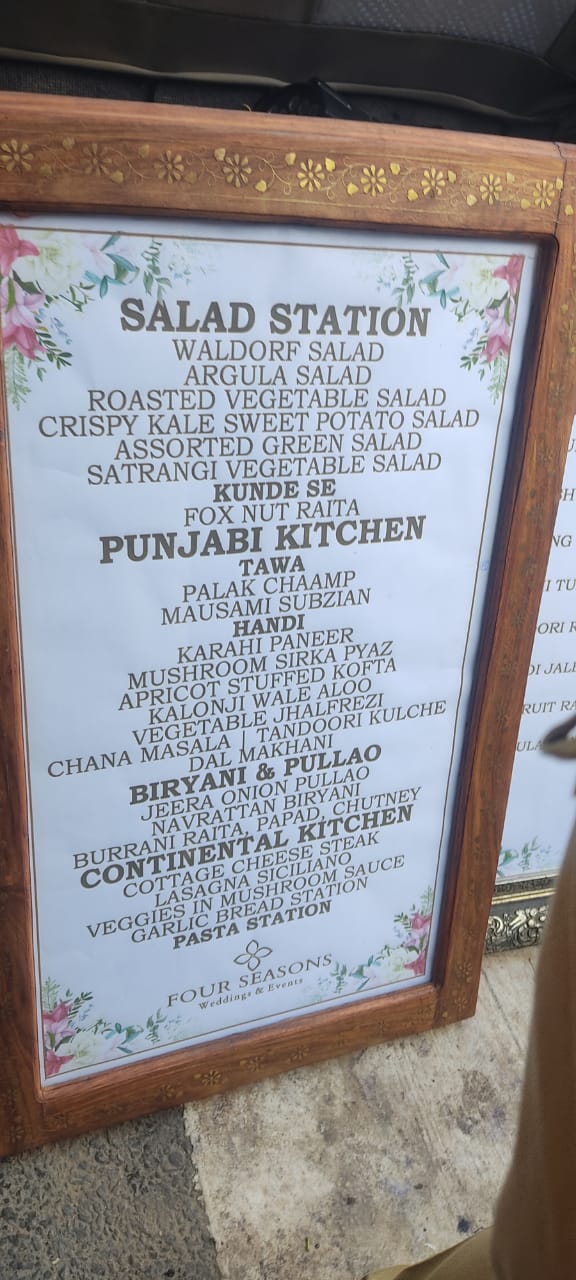 SALAD STATION
WALDORF SALAD
ARGULA SALAD
ROASTED VEGETABLE SALAD
CRISPY KALE SWEET POTATO SALAD
ASSORTED GREEN SALAD
SATRANGI VEGETABLE SALAD
KUNDE SE
FOX NUT RAITA
PUNJABI KITCHEN
TAWA
PALAK CHAAMP
MAUSAMI SUBZIAN
HANDI
KARAHI PANEER
MUSHROOM SIRKA PYAZ
APRICOT STUFFED KOFTA
KALONJI WALE ALOO
VEGETABLE JHALFREZI
CHANA MASALA | TANDOORI KULCHE
DAL MAKHANI
BIRYANI & PULLAO
JEERA ONION PULLAO
NAVRATTAN BIRYANI
BURRANI RAITA, PAPAD, CHUTNEY
CONTINENTAL KITCHEN
COTTAGE CHEESE STEAK
LASAGNA SICILIANO
VEGGIES IN MUSHROOM SAUCE
GARLIC BREAD STATION
PASTA STATION
FOUR SEASONS
Weddings & Events